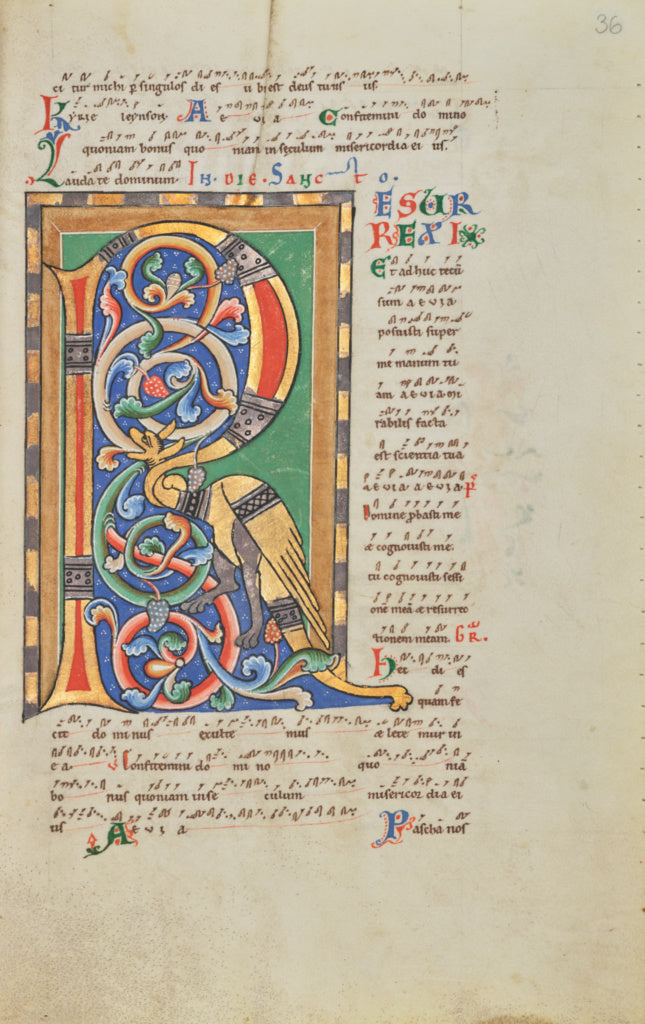 36
ci tur michi p singulos di es u bi est deus tu us us.
Kyrie leyson. A e v i a Confitemini do mino
quoniam bonus quo niam in seculum misericordia ei us.
Laudate dominum. IN DIE SANC TO.
R ESUR
REXI
Et adhuc tecū
sum a e v i a
posuisti super
me manum tu
am a e v i a mi
rabilis facta
est scientia tua
a e v i a a e v i a p̄
Domine pbasti me
æ cognovisti me.
tu cognovisti sessi
onē meā æ resurrec
tionem meam. GR.
Hec di es
quam fe
cit do minus exulte mus æ lete mur in
e a. Confitemini do mi no quo niā
bo nus quoniam in se culum misericor dia ei
us A e v i a Pascha nos